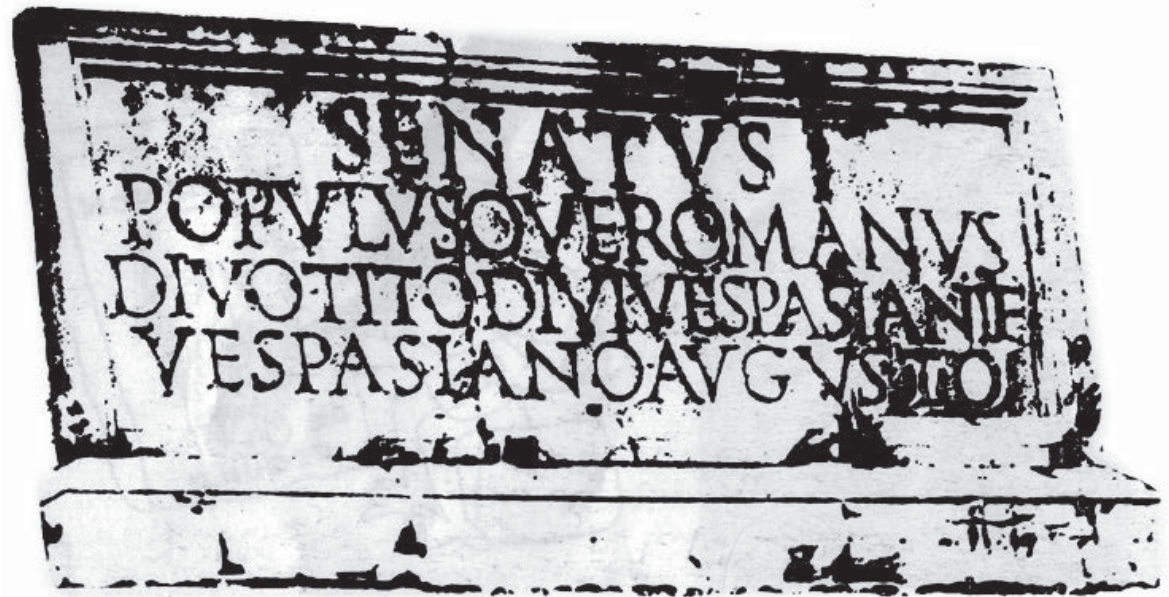 SENATVS
POPVLVSQVEROMANVS
DIVOTITODIVIVESPASIANIF
VESPASIANOAVGVSTO